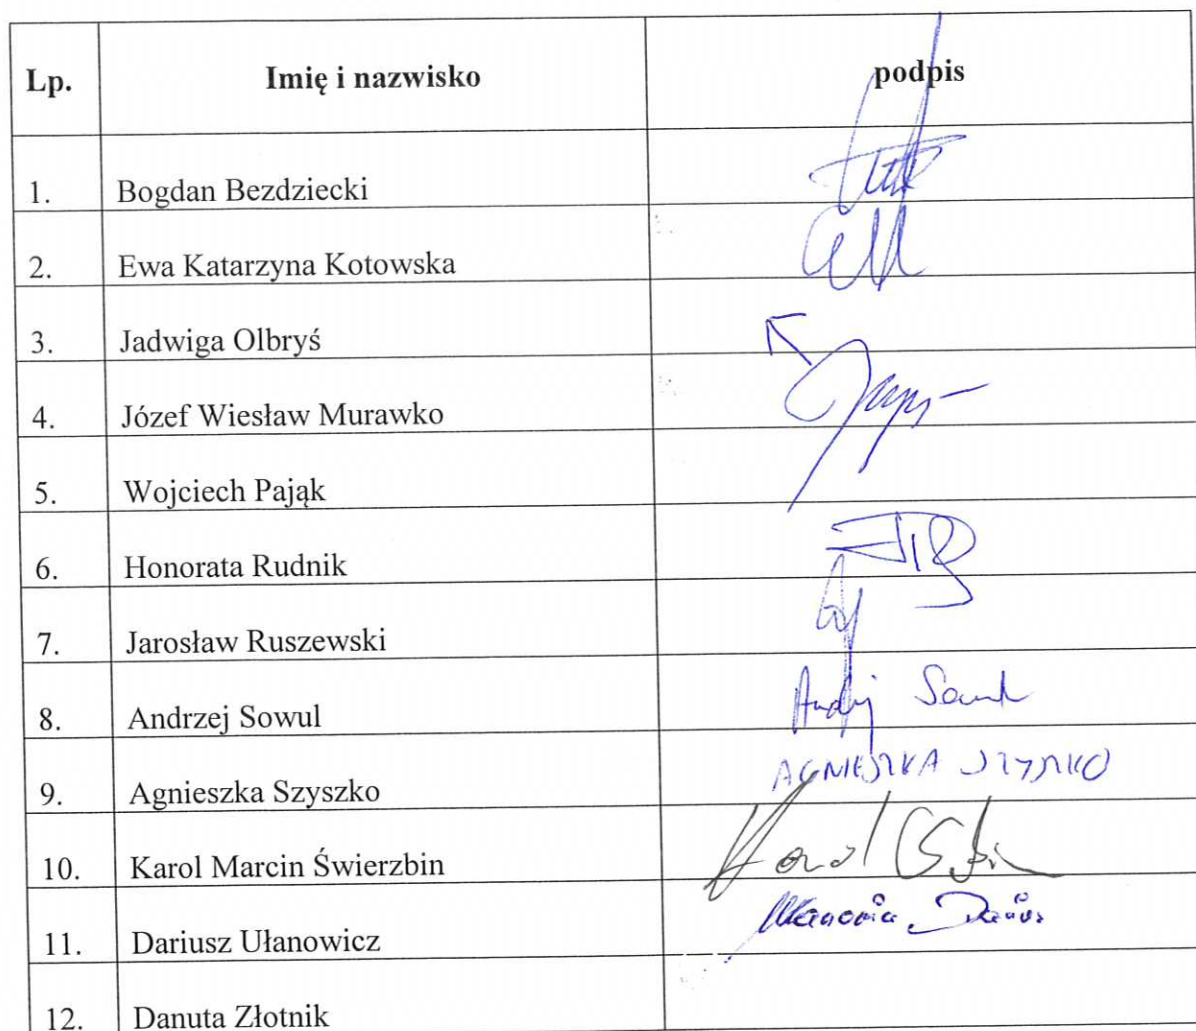 Lp. Imię i nazwisko podpis
1. Bogdan Bezdziecki
2. Ewa Katarzyna Kotowska
3. Jadwiga Olbryś
4. Józef Wiesław Murawko
5. Wojciech Pająk
6. Honorata Rudnik
7. Jarosław Ruszewski
8. Andrzej Sowul Andrzej Sowul
9. Agnieszka Szyszko AGNIESZKA SZYSZKO
10. Karol Marcin Świerzbin Karol
11. Dariusz Ułanowicz
12. Danuta Złotnik